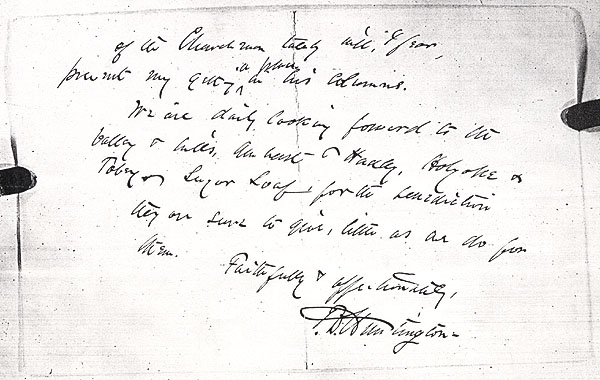 of the Churchman lately will, I fear,
prevent my getting a place in his columns.
We are daily looking forward to the
valley & hills, Amherst & Hadley, Holyoke &
Toby & Sugar Loaf, for the benediction
they are sure to give, little as we do for
them.
Faithfully & affectionately,
F. D. Huntington